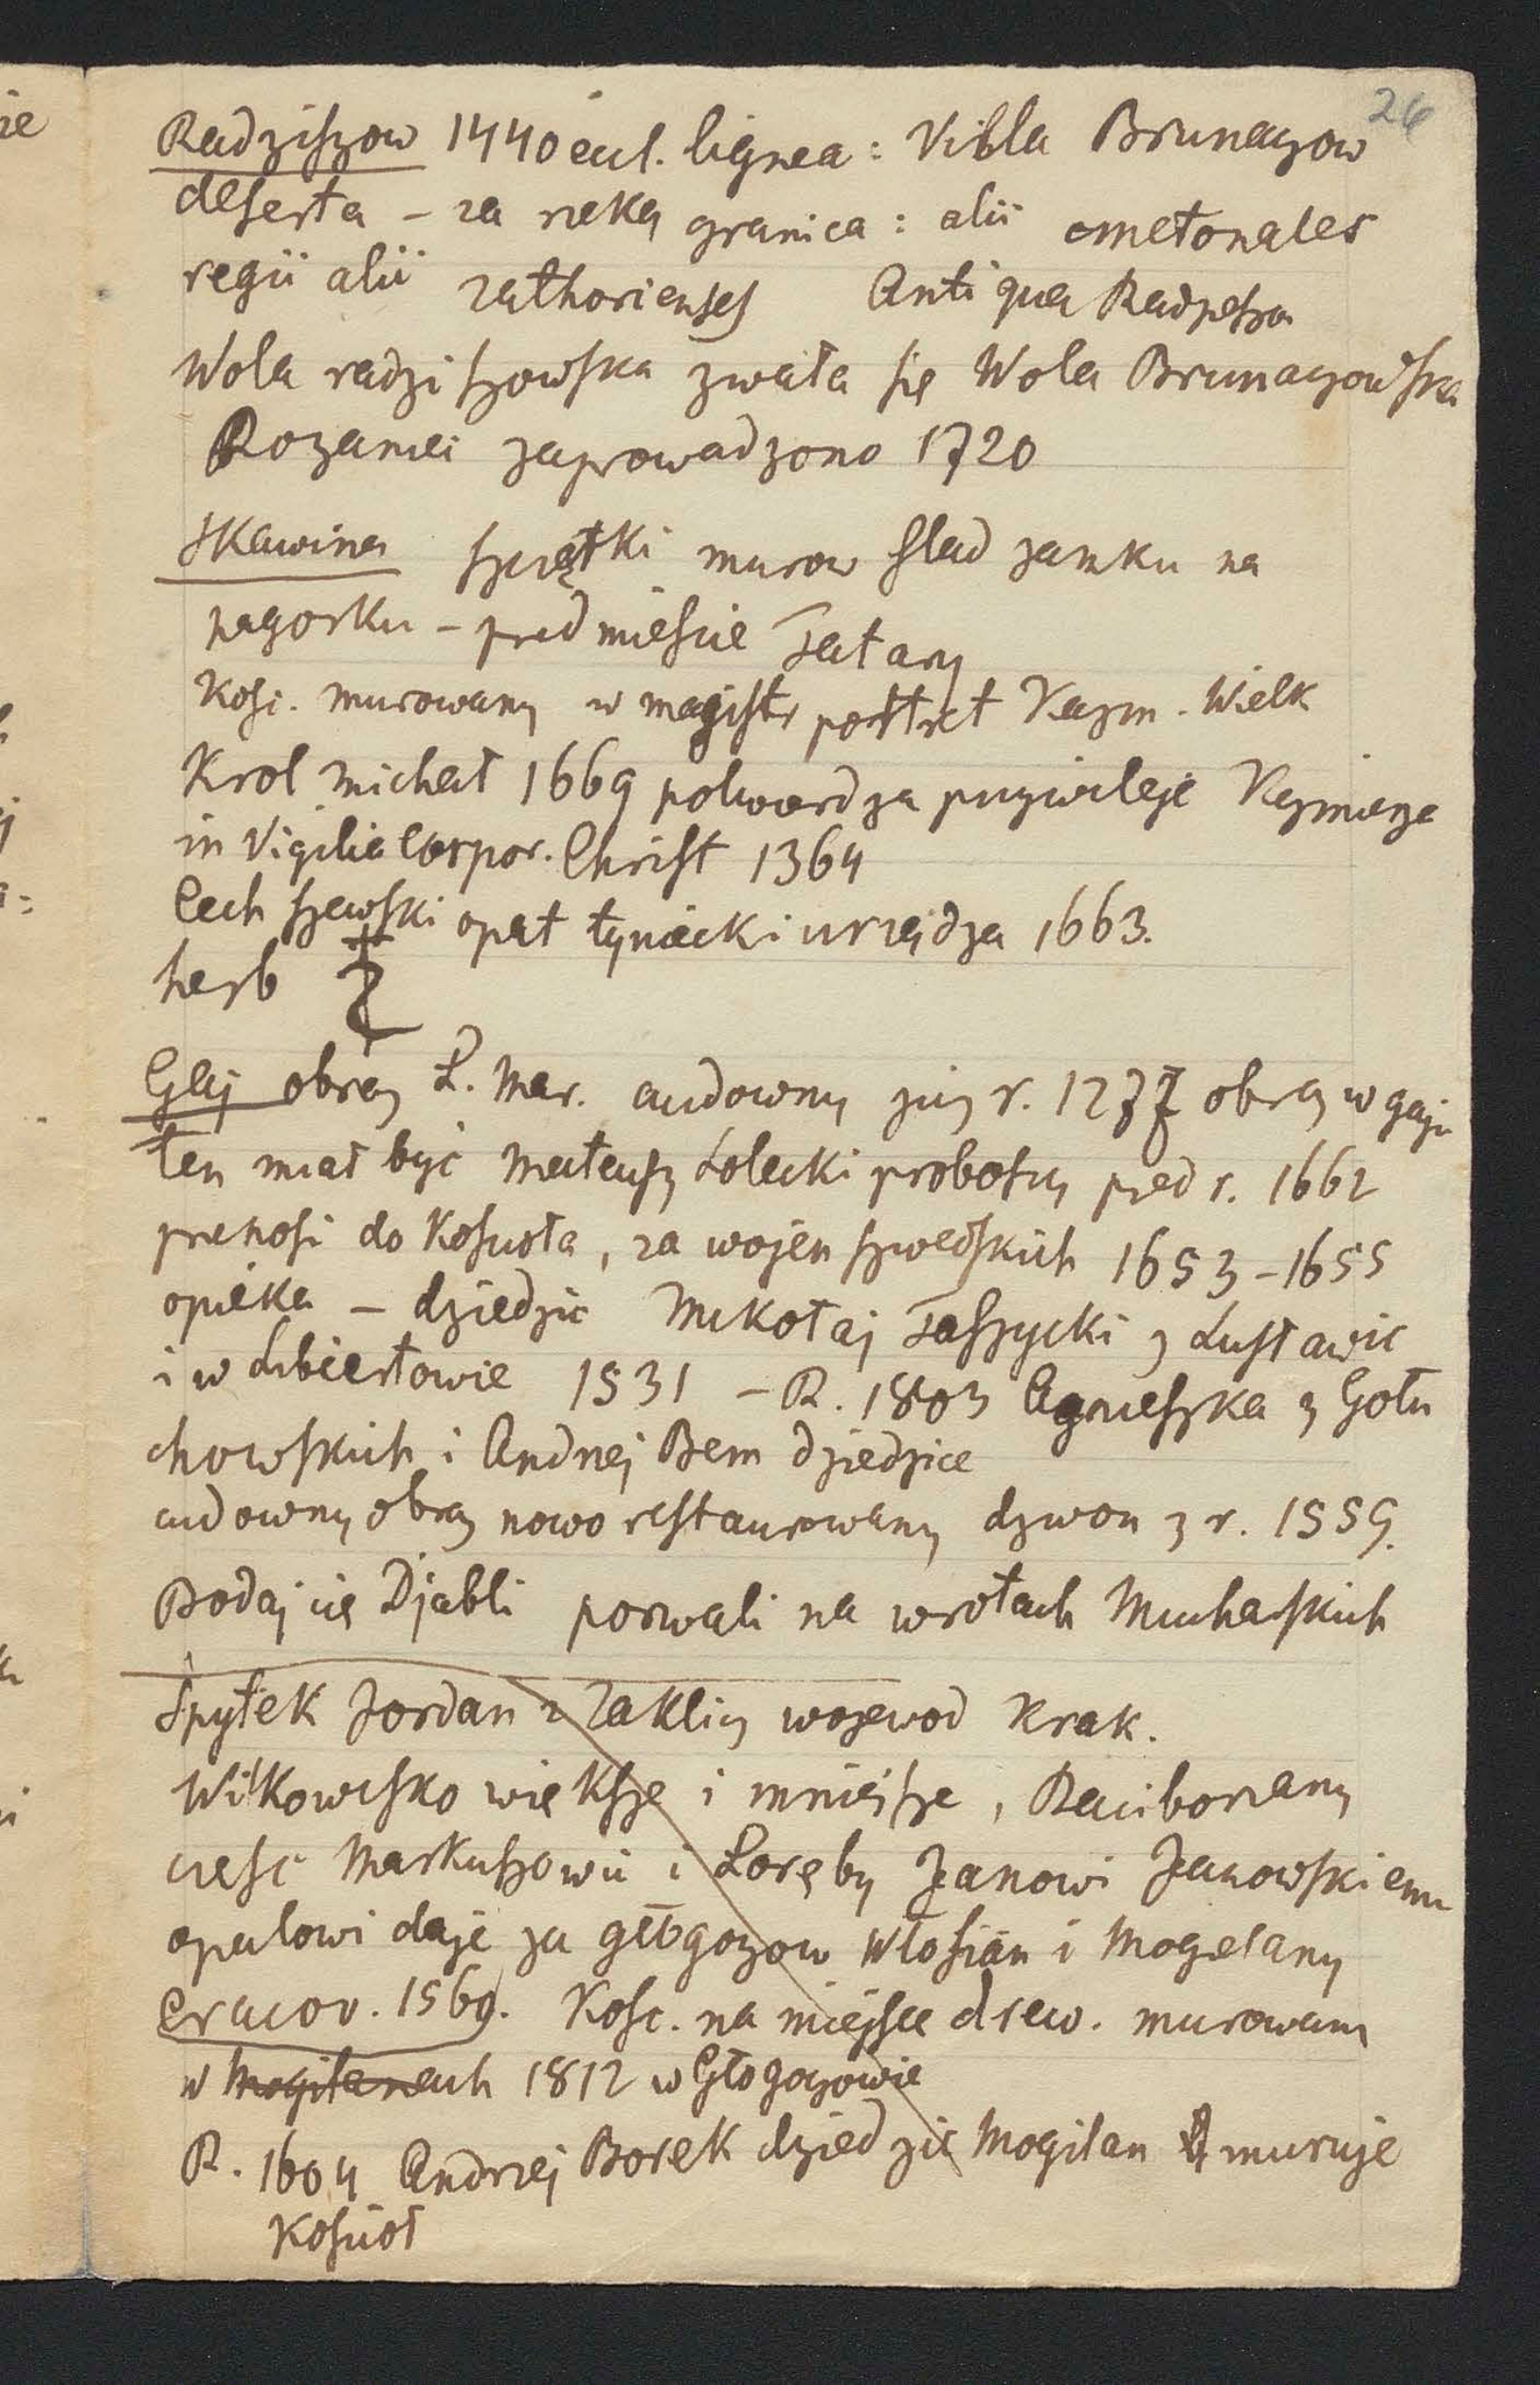 26
Radziszow 1440 eccl. lignea : Villa Brunaczow
deserta – za rzeką granica : alii cmetonales
regii alii zathorienses Antiqua Radzesza
Wola radziszowska zwała się Wola Brunaczowska
Rozaniec zaprowadzono 1720
Skawina szczątki murow slad zamku na
pagorku – przedmiescie Tatary
Kosc. murowany w magistr portret Kazm. Wielk
Krol Michał 1669 potwerdza przywileje Kazmierza
in Vigilia Corpor. Christ 1364
Cech szewski opat tyniecki urządza 1663.
herb
Gaj obraz P. Mar. cudowny już r. 1277 obraz w gaju
ten miał być Mateusz Lolecki proboszcz przed r. 1662
przenosi do Koscioła, za wojen szwedskich 1653–1655
opieka – dziedzic Mikołaj Taszycki z Lusławic
i w Lubiesłowie 1531 – R. 1803 Agnieszka z Gołu
chowskich i Andrzej Bem dziedzice
cudowny obraz nowo restaurowany dzwon z r. 1559.
Bodaj cię Djabli porwali na wrotach Mucharskich
Spytek Jordan z Zakliczy wojewod Krak.
Wilkowisko większe i mniejsze, Raciborzany
czesc Markuszowic i Poręby Janowi Janowskiemu
opatowi daje za głogoczow Włosian i Mogelany
Cracov. 1569. Kosc. na miejsce drew. murowany
w Mogilanach 1812 w Głogoczowie
R. 1604 Andrzej Borek dziedzic Mogilan muruje
Kosciół